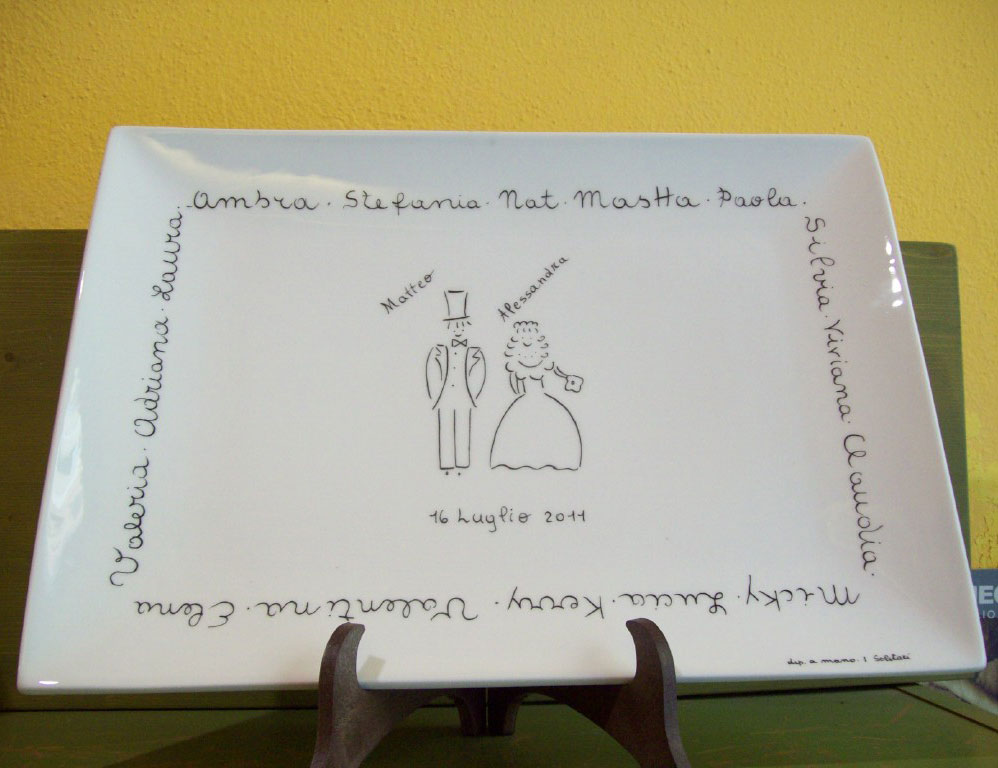 Ambra · Stefania · Nat · MasHa · Paola ·
Silvia · Viviana · Claudia ·
Micky · Lucia · Kerry · Valentina · Elena
Valeria · Adriana · Laura ·
Matteo
Alessandra
16 Luglio 2011
dip. a mano · I